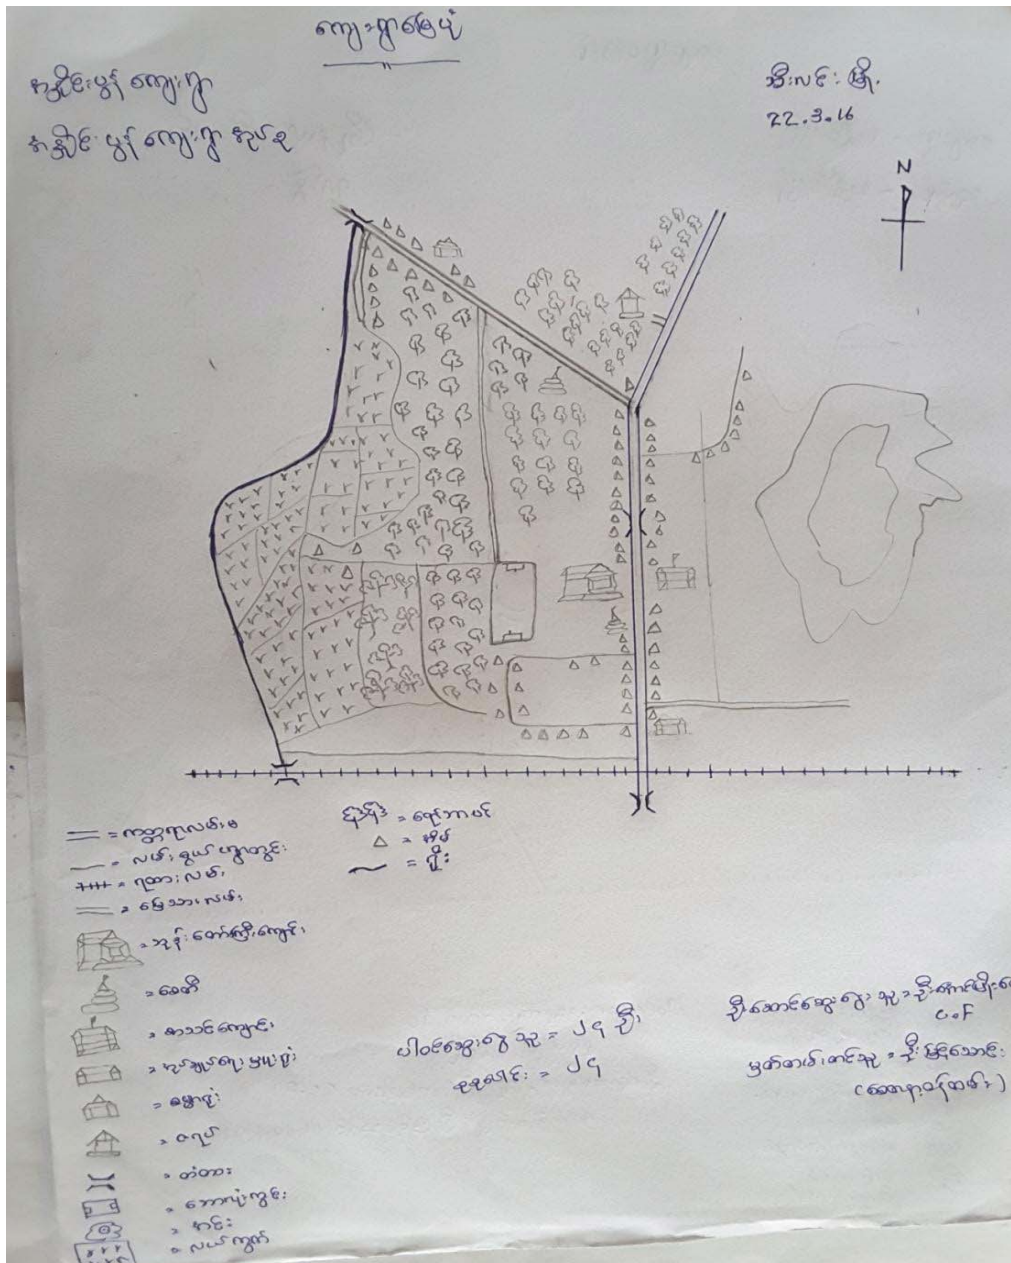 ကျေးရွာမြေပုံ
ကျေးရွာ
ကျေးရွာ အုပ်စု
သီးလင်း မြို့
22.3.16
N
= ကတ္တရာလမ်းမ
= လမ်းသွယ်
= ရထားလမ်း
= မြေသားလမ်း
= ဘုန်းတော်ကြီးကျောင်း
= စေတီ
= စာသင်ကျောင်း
= အုပ်ချုပ်ရေးမှူးရုံး
= ဓမ္မာရုံ
= ဇရပ်
= တံတား
= ဘောလုံးကွင်း
= အင်း
= လယ်ကွက်
= ရော်ဘာပင်
= အိမ်
= ရိုး
ပါဝင်ဆွေးနွေးသူ = ၂၄ ဦး
စုစုပေါင်း = ၂၄
ဦးဆောင်ဆွေးနွေးသူ =
C.F
မှတ်တမ်းတင်သူ = ဦးမြင့်သောင်း